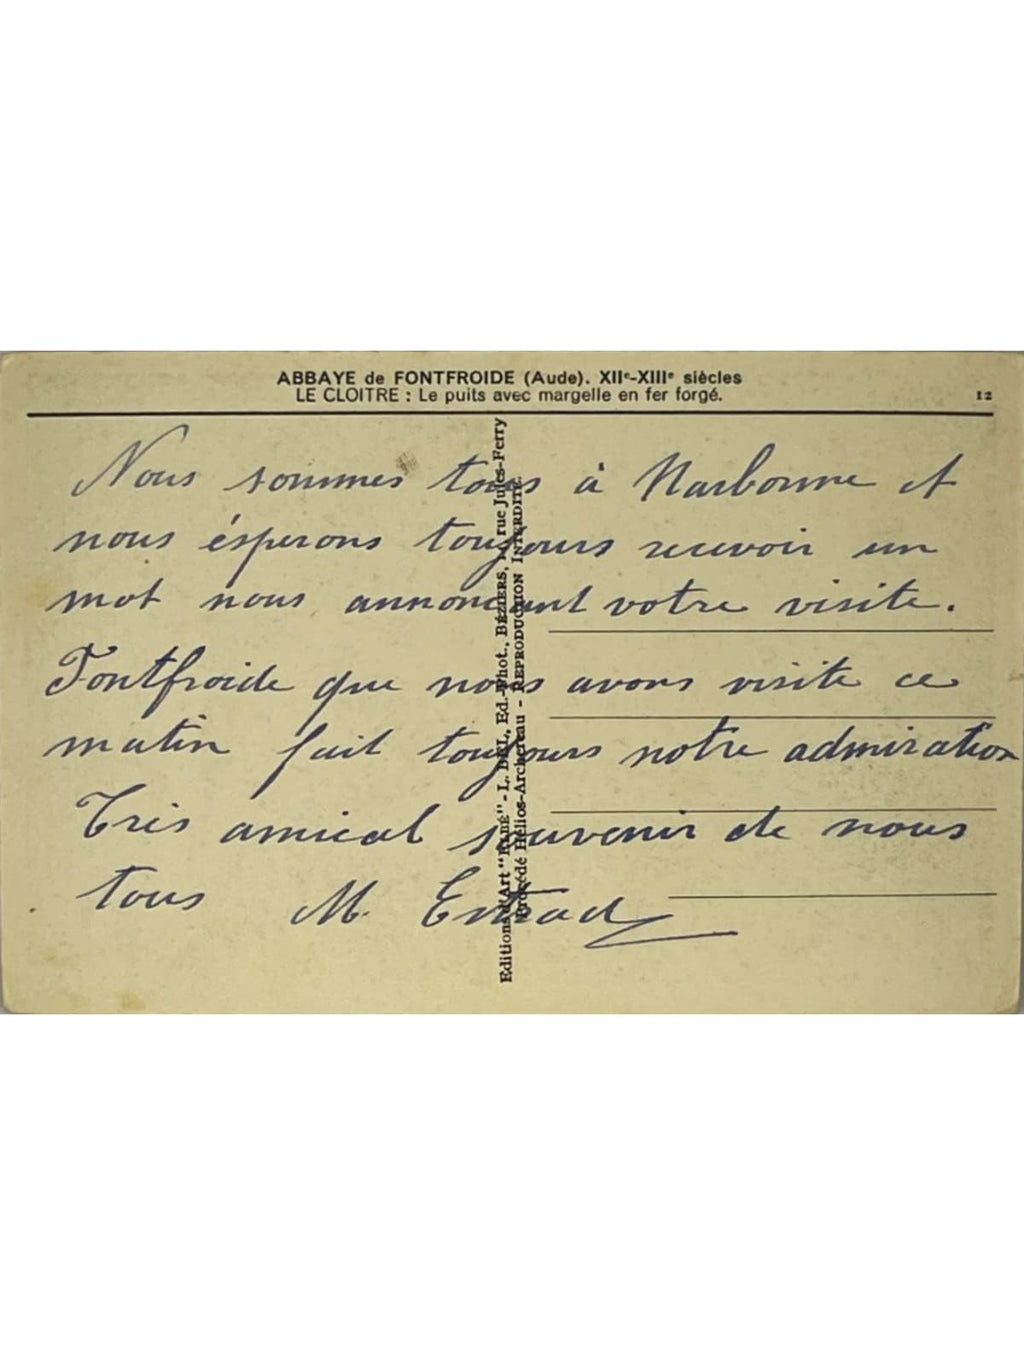 ABBAYE de FONTFROIDE (Aude). XIIe-XIIIe siècles
LE CLOITRE : Le puits avec margelle en fer forgé.
12
Nous sommes tous à Narbonne et
nous ésperons toujours recevoir un
mot nous annonçant votre visite.
Fontfroide que nous avons visité ce
matin fait toujours notre admiration
Très amical souvenir de nous
tous M.
Editions d'Art - L. BEL, Ed.-Phot., BÉZIERS, rue Jules-Ferry
Procédé Hélios-Archereau - REPRODUCTION INTERDITE